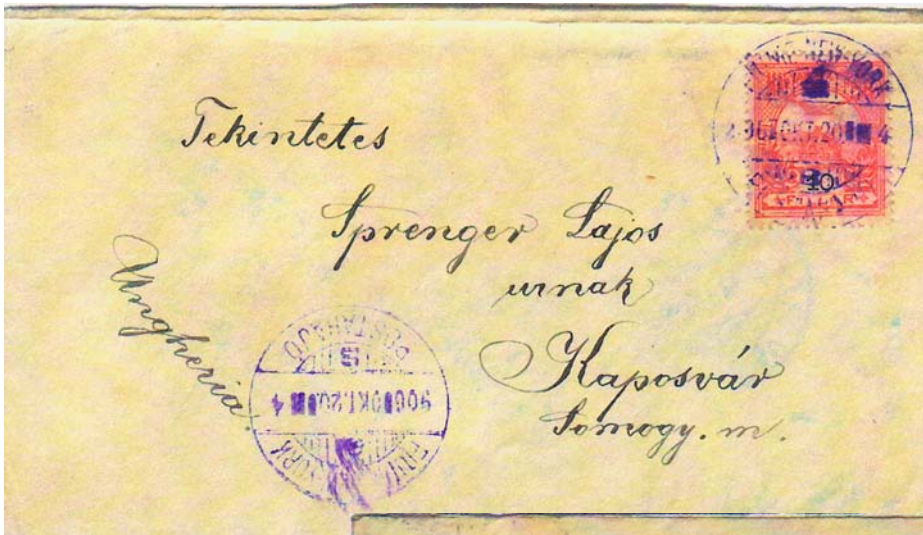 Tekintetes
Sprenger Lajos
urnak
Kaposvár
Somogy. m.
Ungheria.
NEW-YORK
906 OKT. 20. 4
10
906 OKT. 20. 4
POSTAHAJÓ